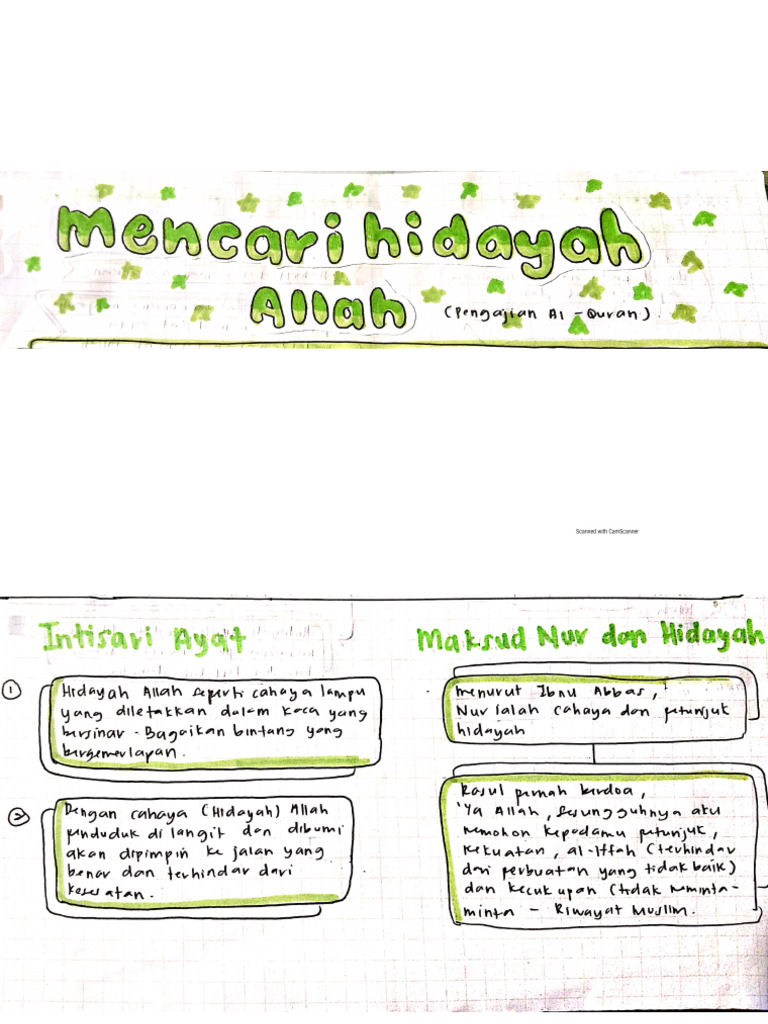 Mencari hidayah
Allah
(Pengajian Al-Quran)
Scanned with CamScanner
Intisari Ayat
1
Hidayah Allah seperti cahaya lampu
yang diletakkan dalam kaca yang
bersinar - Bagaikan bintang yang
bergemerlapan.
2
Dengan cahaya (Hidayah) Allah
penduduk di langit dan dibumi
akan dipimpin ke jalan yang
benar dan terhindar dari
kesesatan.
Maksud Nur dan Hidayah
menurut Ibnu Abbas,
Nur ialah cahaya dan petunjuk
hidayah
Rasul pernah berdoa,
'Ya Allah, sesungguhnya aku
memohon kepadamu petunjuk,
kekuatan, al-Iffah (terhindar
dari perbuatan yang tidak baik)
dan kecukupan (tidak meminta-
minta - Riwayat Muslim.